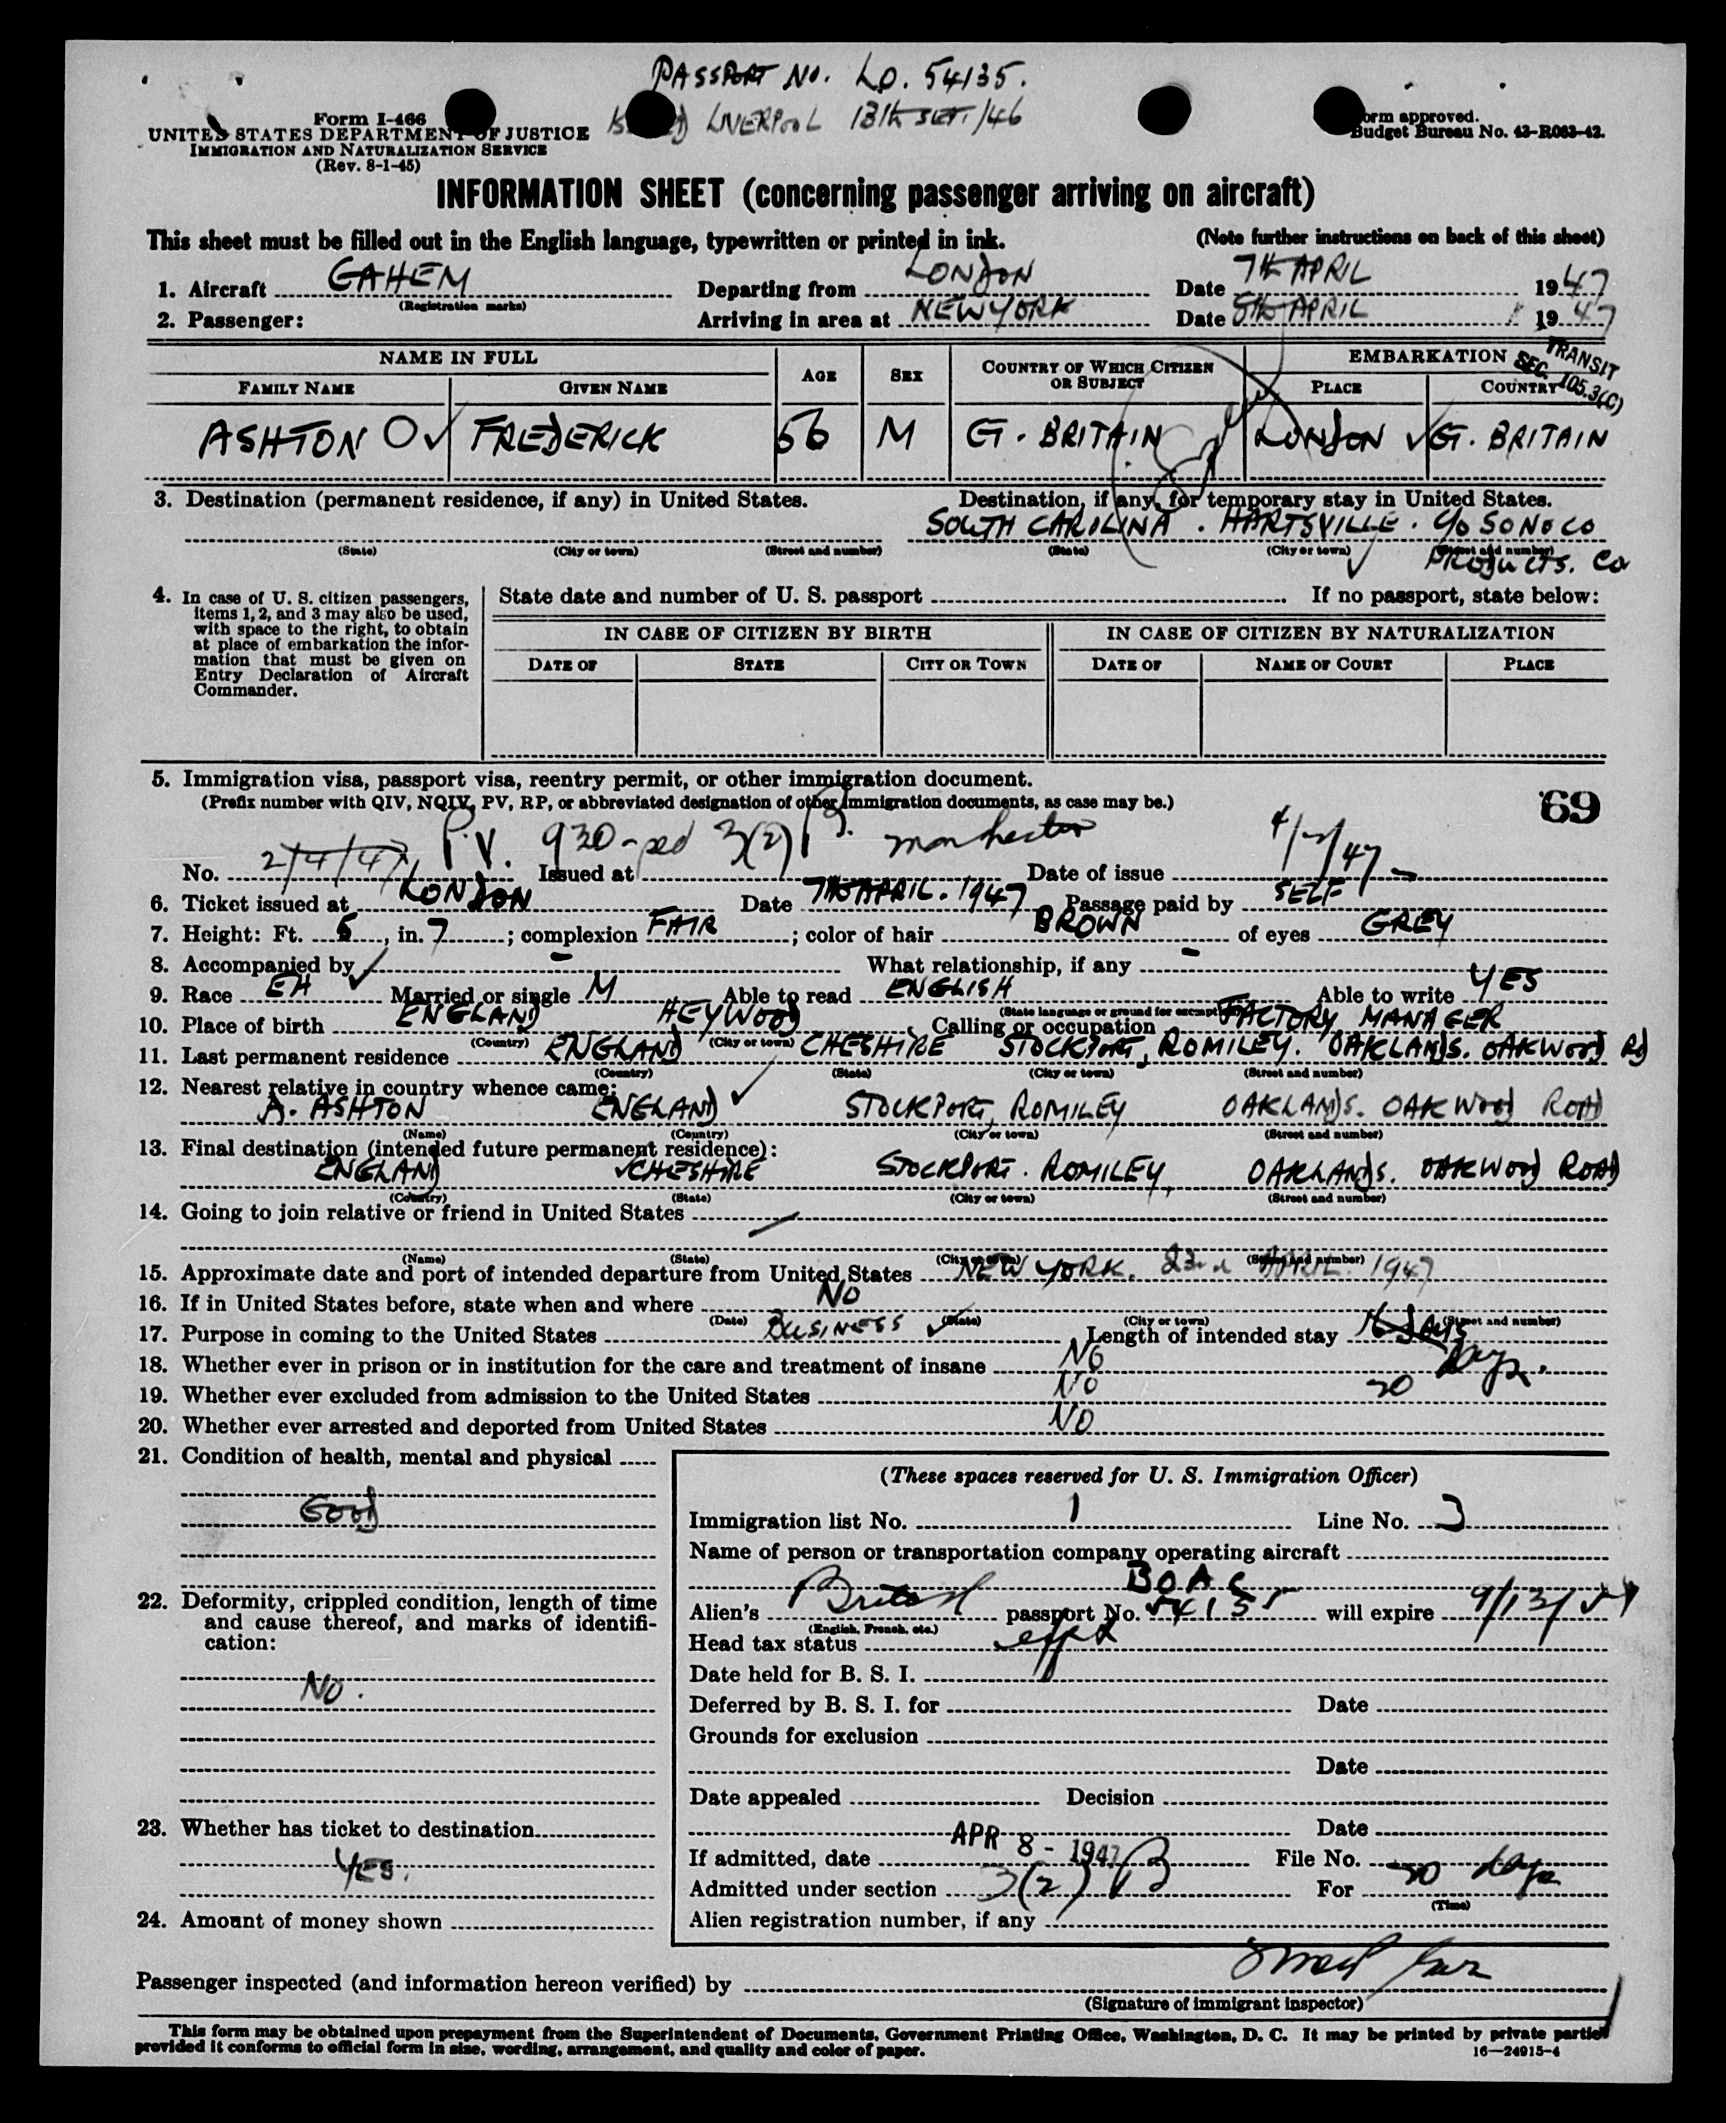 PASSPORT NO. LO. 54135.
ISSUED LIVERPOOL 13th SEPT. /46
Form I-466
UNITED STATES DEPARTMENT OF JUSTICE
IMMIGRATION AND NATURALIZATION SERVICE
(Rev. 8-1-45)
Form approved.
Budget Bureau No. 43-R083-42.
INFORMATION SHEET (concerning passenger arriving on aircraft)
This sheet must be filled out in the English language, typewritten or printed in ink. (Note further instructions on back of this sheet)
1. Aircraft GAHEM Departing from LONDON Date 7th APRIL 1947
(Registration marks)
2. Passenger: Arriving in area at NEW YORK Date 8th APRIL 1947
TRANSIT
SEC. 105.3(C)
NAME IN FULL AGE SEX COUNTRY OF WHICH CITIZEN OR SUBJECT EMBARKATION
FAMILY NAME GIVEN NAME PLACE COUNTRY
ASHTON O FREDERICK 56 M G. BRITAIN LONDON G. BRITAIN
3. Destination (permanent residence, if any) in United States. Destination, if any, for temporary stay in United States.
SOUTH CAROLINA. HARTSVILLE. C/o SONOCO
(State) (City or town) (Street and number) (State) (City or town) (Street and number)
PRODUCTS. Co
4. In case of U. S. citizen passengers, items 1, 2, and 3 may also be used, with space to the right, to obtain at place of embarkation the information that must be given on Entry Declaration of Aircraft Commander.
State date and number of U. S. passport If no passport, state below:
IN CASE OF CITIZEN BY BIRTH IN CASE OF CITIZEN BY NATURALIZATION
DATE OF STATE CITY OR TOWN DATE OF NAME OF COURT PLACE
5. Immigration visa, passport visa, reentry permit, or other immigration document.
(Prefix number with QIV, NQIV, PV, RP, or abbreviated designation of other immigration documents, as case may be.)
69
P.V. 930 3(2) B. Manchester 4/2/47
No. 2/4/47 Issued at Date of issue
6. Ticket issued at LONDON Date 7th APRIL. 1947 Passage paid by SELF
7. Height: Ft. 5, in. 7; complexion FAIR; color of hair BROWN of eyes GREY
8. Accompanied by - What relationship, if any -
9. Race EH Married or single M Able to read ENGLISH Able to write YES
(State language or ground for exemption)
10. Place of birth ENGLAND HEYWOOD, Calling or occupation FACTORY MANAGER
(Country) (City or town)
11. Last permanent residence ENGLAND CHESHIRE STOCKPORT, ROMILEY. OAKLANDS. OAKWOOD Rd
(Country) (State) (City or town) (Street and number)
12. Nearest relative in country whence came:
A. ASHTON ENGLAND STOCKPORT, ROMILEY OAKLANDS. OAKWOOD ROAD
(Name) (Country) (City or town) (Street and number)
13. Final destination (intended future permanent residence):
ENGLAND CHESHIRE STOCKPORT. ROMILEY, OAKLANDS. OAKWOOD ROAD
(Country) (State) (City or town) (Street and number)
14. Going to join relative or friend in United States
(Name) (State) (City or town) (Street and number)
15. Approximate date and port of intended departure from United States NEW YORK. 23rd APRIL. 1947
16. If in United States before, state when and where No
(Date) (State) (City or town) (Street and number)
17. Purpose in coming to the United States BUSINESS Length of intended stay 16 days
18. Whether ever in prison or in institution for the care and treatment of insane NO
30 days.
19. Whether ever excluded from admission to the United States NO
20. Whether ever arrested and deported from United States NO
21. Condition of health, mental and physical
GOOD
22. Deformity, crippled condition, length of time and cause thereof, and marks of identification:
NO.
23. Whether has ticket to destination
YES.
24. Amount of money shown
(These spaces reserved for U. S. Immigration Officer)
Immigration list No. 1 Line No. 3
Name of person or transportation company operating aircraft
BOAC
Alien's British passport No. 54135 will expire 9/13/51
(English, French, etc.)
Head tax status
Date held for B. S. I.
Deferred by B. S. I. for Date
Grounds for exclusion
Date
Date appealed Decision
Date
If admitted, date APR 8 - 1947 File No.
Admitted under section 3(2) B For 30 days
(Time)
Alien registration number, if any
Passenger inspected (and information hereon verified) by
(Signature of immigrant inspector)
This form may be obtained upon prepayment from the Superintendent of Documents, Government Printing Office, Washington, D. C. It may be printed by private parties
provided it conforms to official form in size, wording, arrangement, and quality and color of paper.
16—24915-4